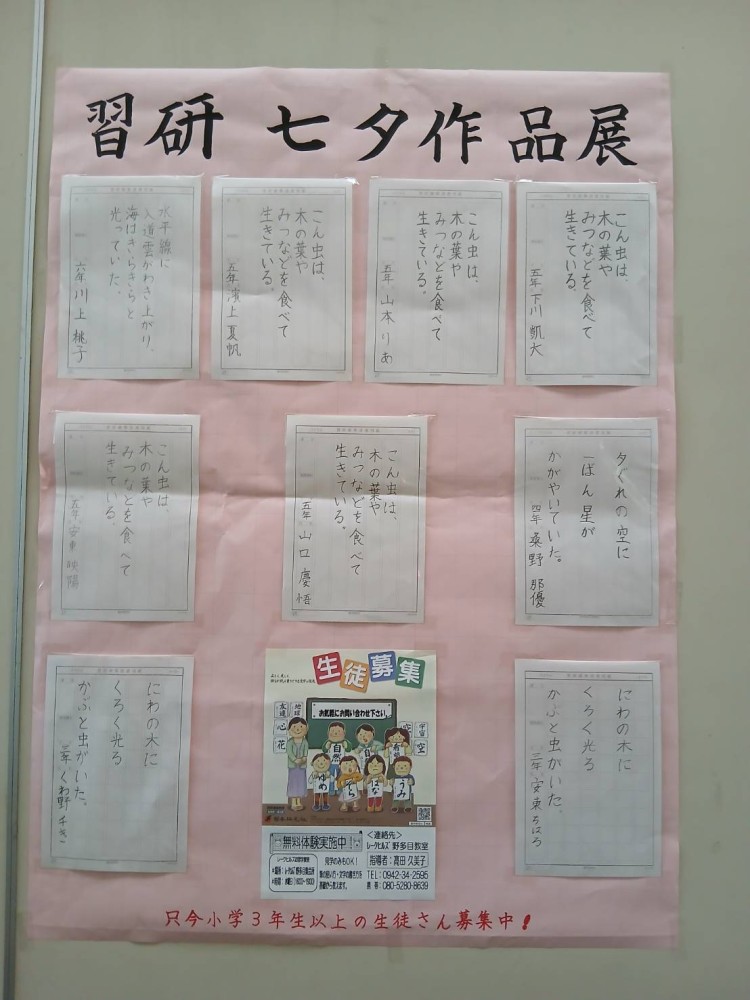 習研 七夕作品展
水平線に
入道雲がわき上がり、
海はきらきらと
光っていた。
六年 川上 桃子
こん虫は、
木の葉や
みつなどを食べて
生きている。
五年 濱上 夏帆
こん虫は、
木の葉や
みつなどを食べて
生きている。
五年 山本 りあ
こん虫は、
木の葉や
みつなどを食べて
生きている。
五年 下川 凱大
こん虫は、
木の葉や
みつなどを食べて
生きている。
五年 安東 映陽
こん虫は、
木の葉や
みつなどを食べて
生きている。
五年 山口 慶悟
夕ぐれの空に
一ばん星が
かがやいていた。
四年 桑野 那優
にわの木に
くろく光る
かぶと虫がいた。
二年 くわ野
生徒募集
お気軽にお問い合わせ下さい。
友達
地球
心
花
宇宙
空
自然
ゆめ
そら
はな
うみ
無料体験実施中!
見学のみもOK!
<連絡先>
レークヒルズ 野多目教室
指導者:高田 久美子
TEL:0942-34-2595
携 帯:080-5280-8639
にわの木に
くろく光る
かぶと虫がいた。
二年 安東 ちはる
只今小学3年生以上の生徒さん募集中!